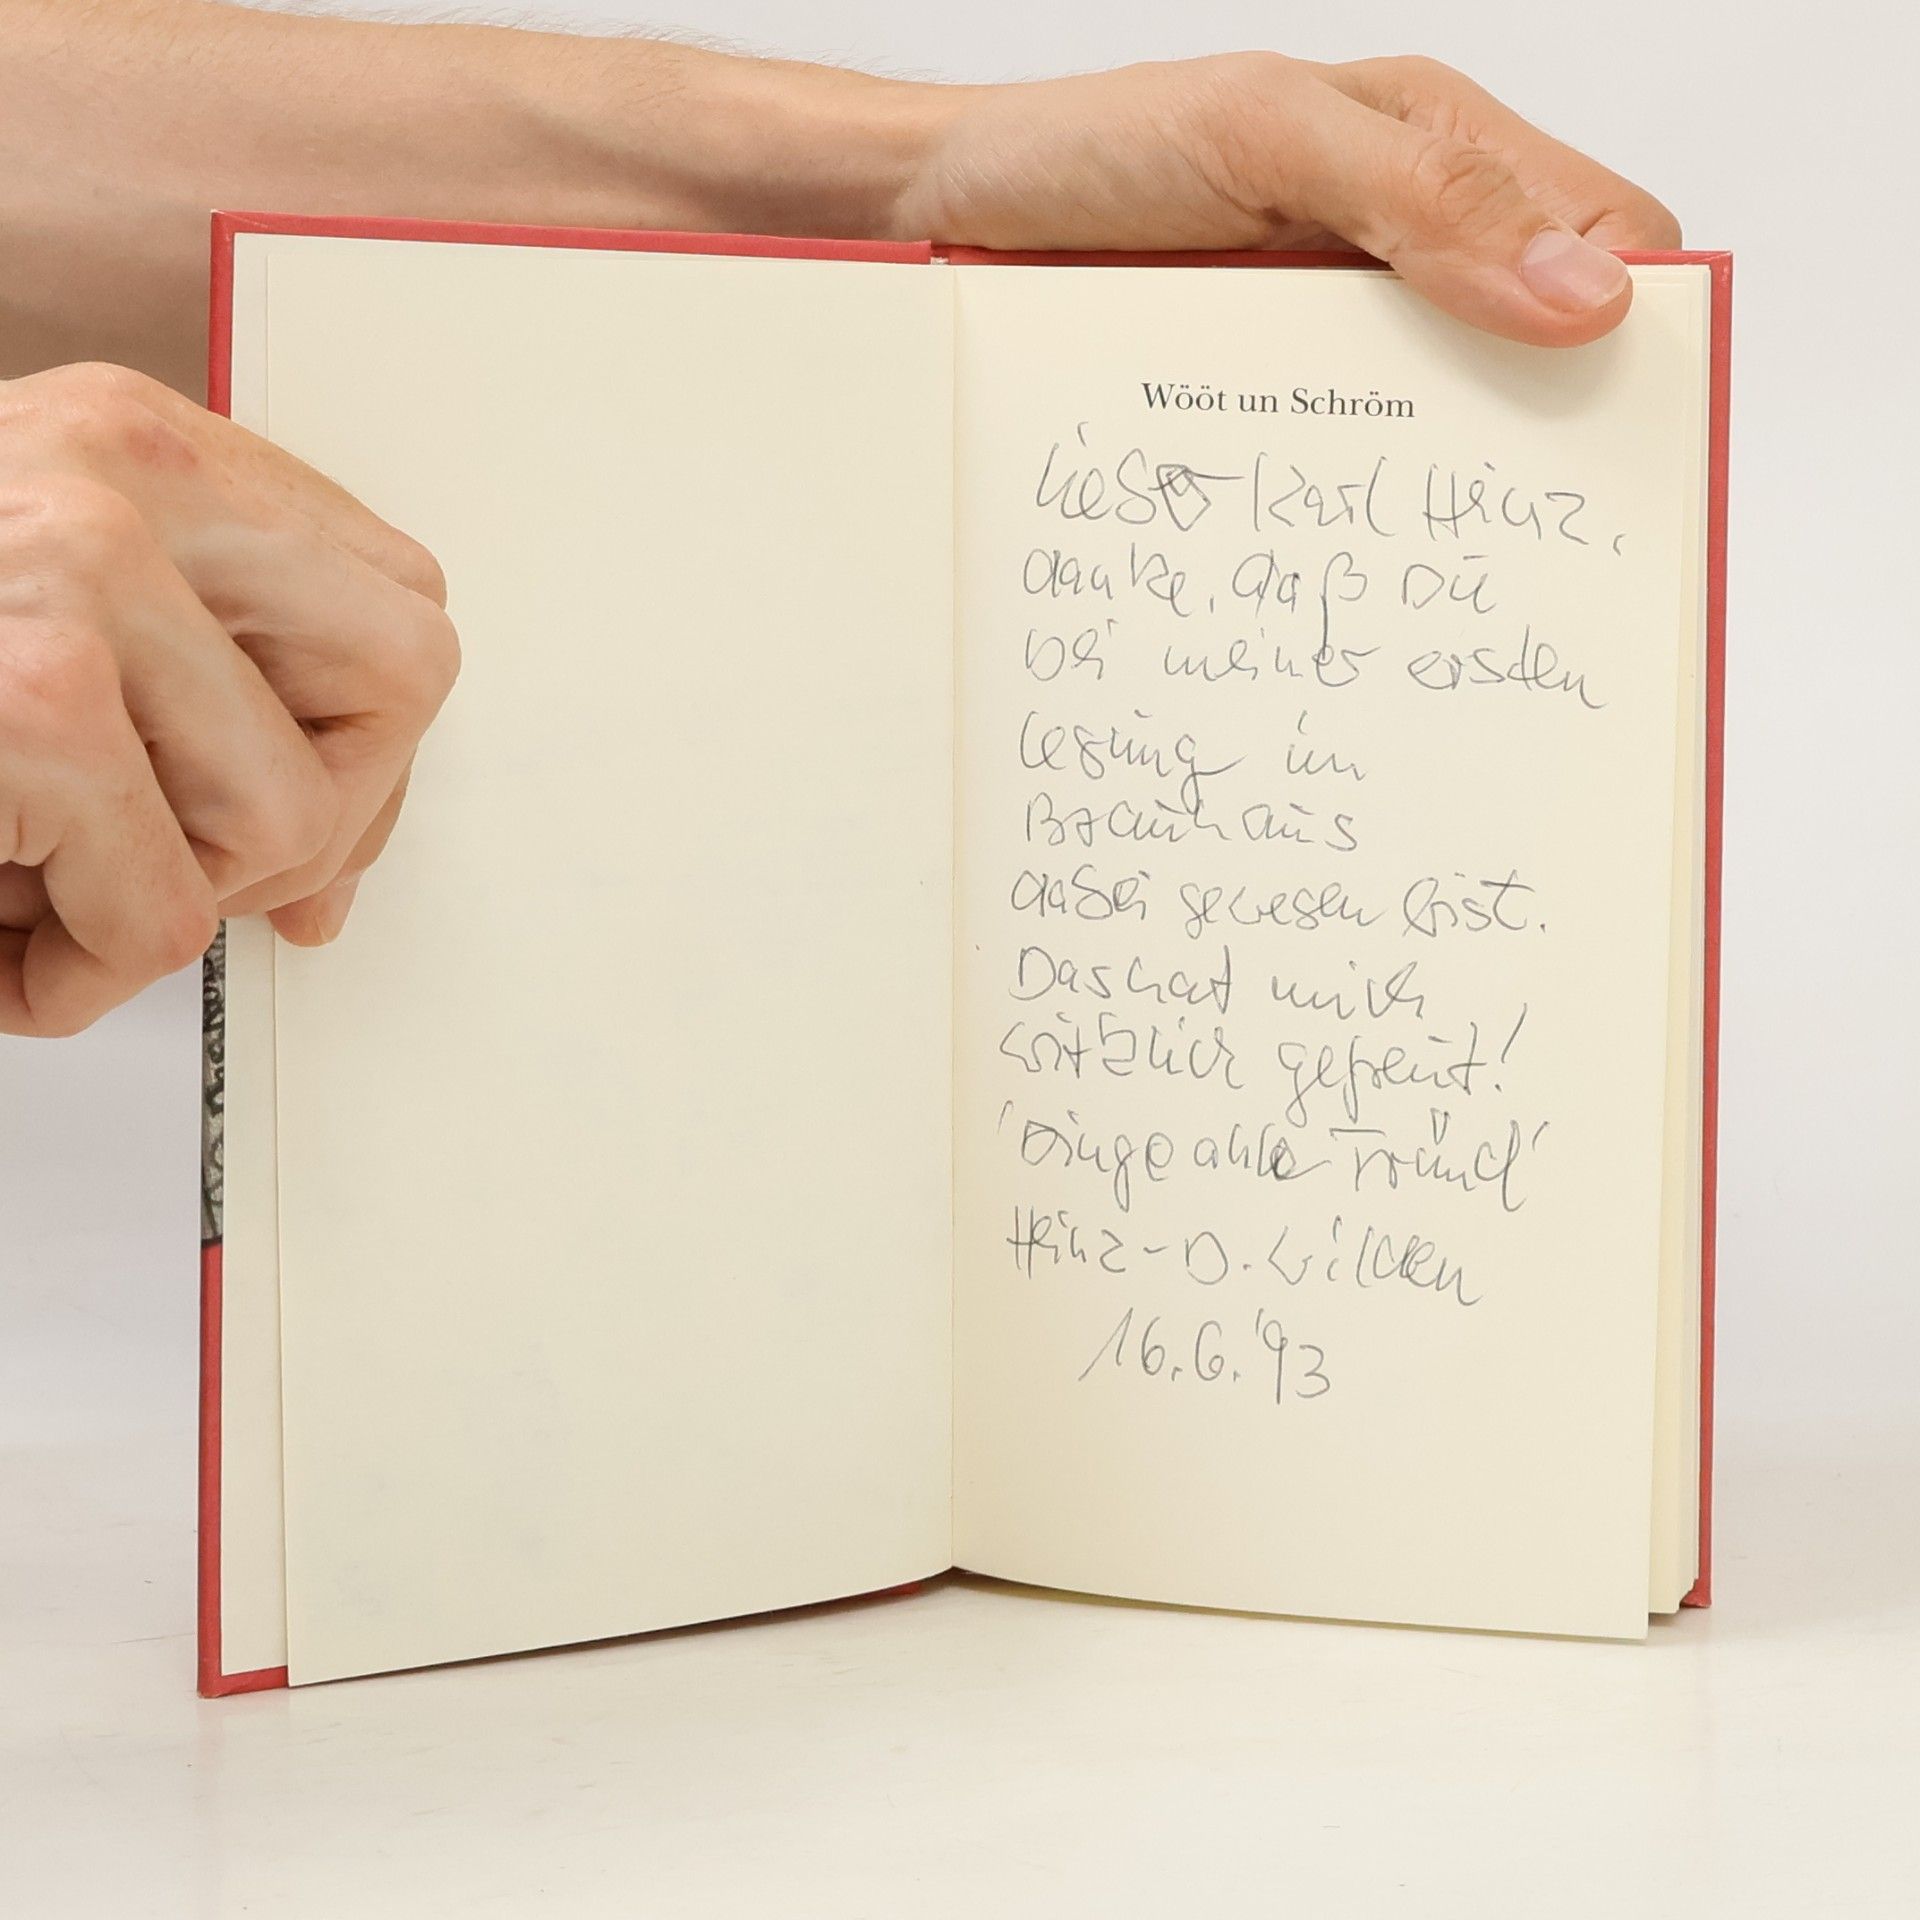 Wööt un Schröm
Lieber Karl Heinz,
danke, daß Du
bei meiner ersten
Lesung im
Brauhaus
dabei gewesen bist.
Das hat mich
wirklich gefreut!
'Dinge ahle Fründ'
Heinz-D. Wilden
16.6.'93